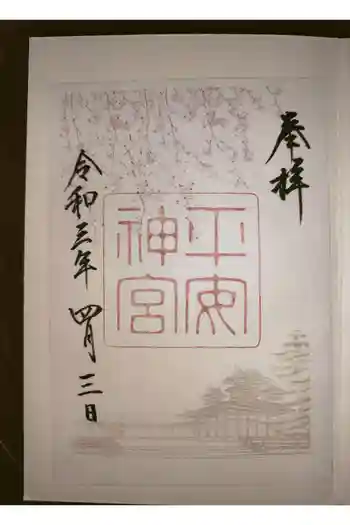 奉拝
平安
神宮
令和三年 四月 三日